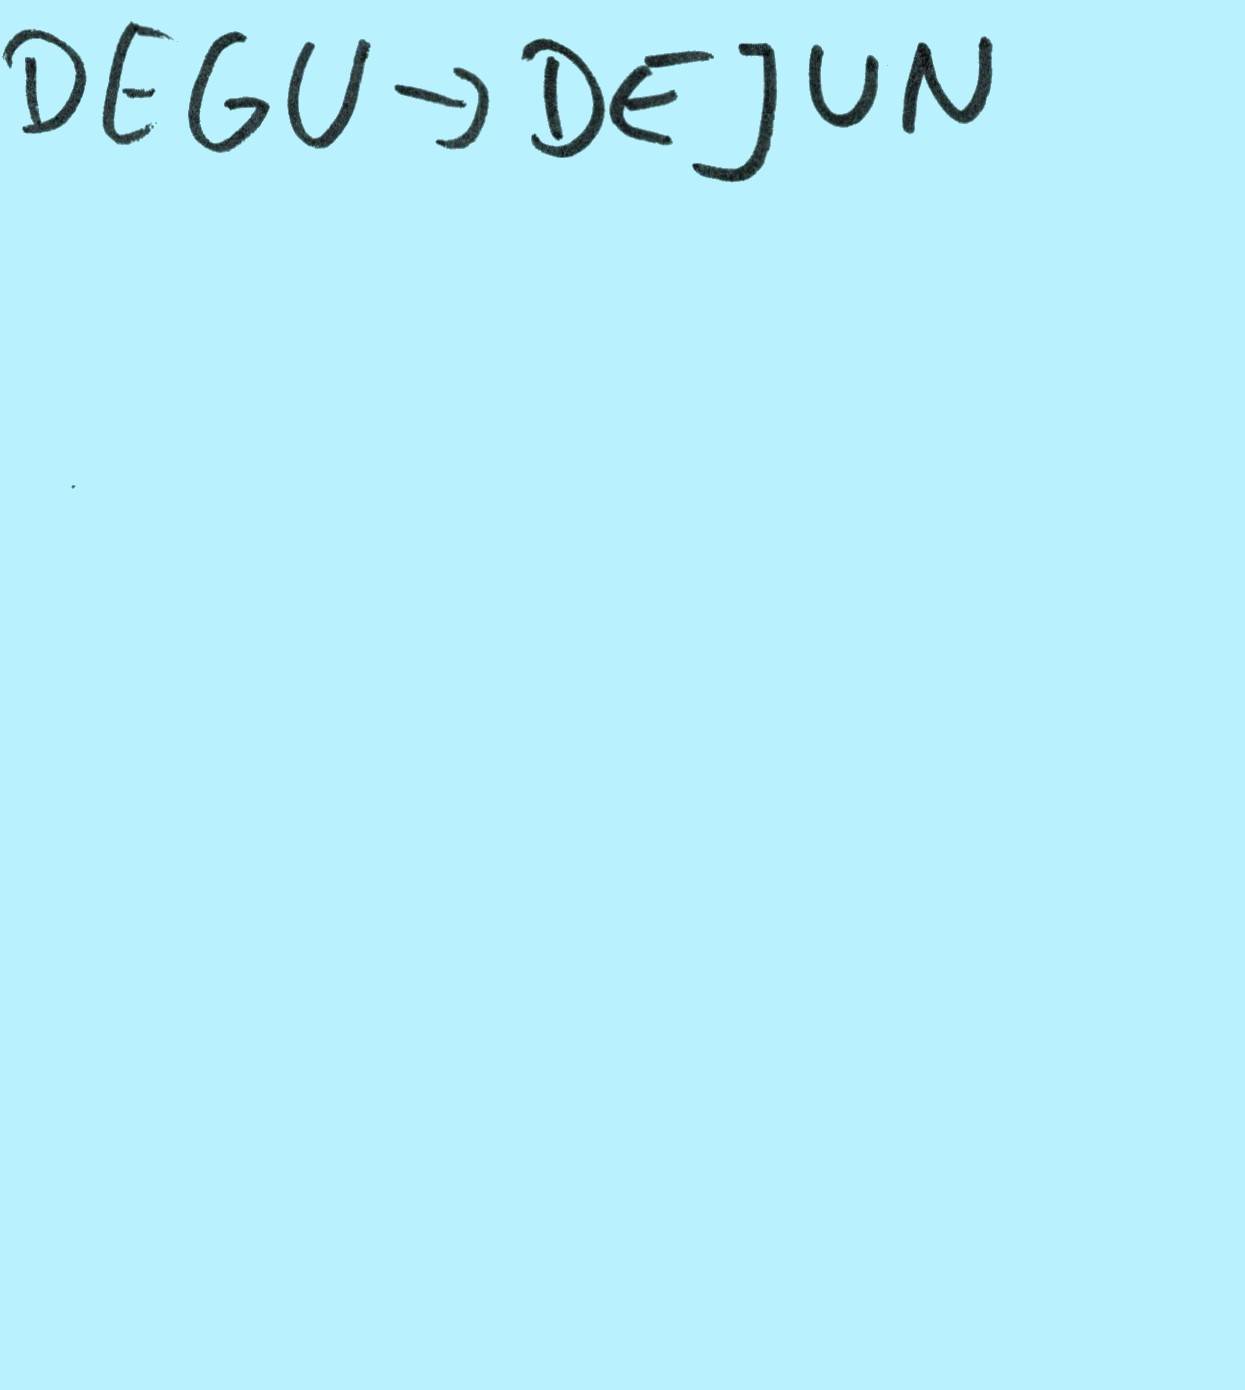 DEGU→DEJUN